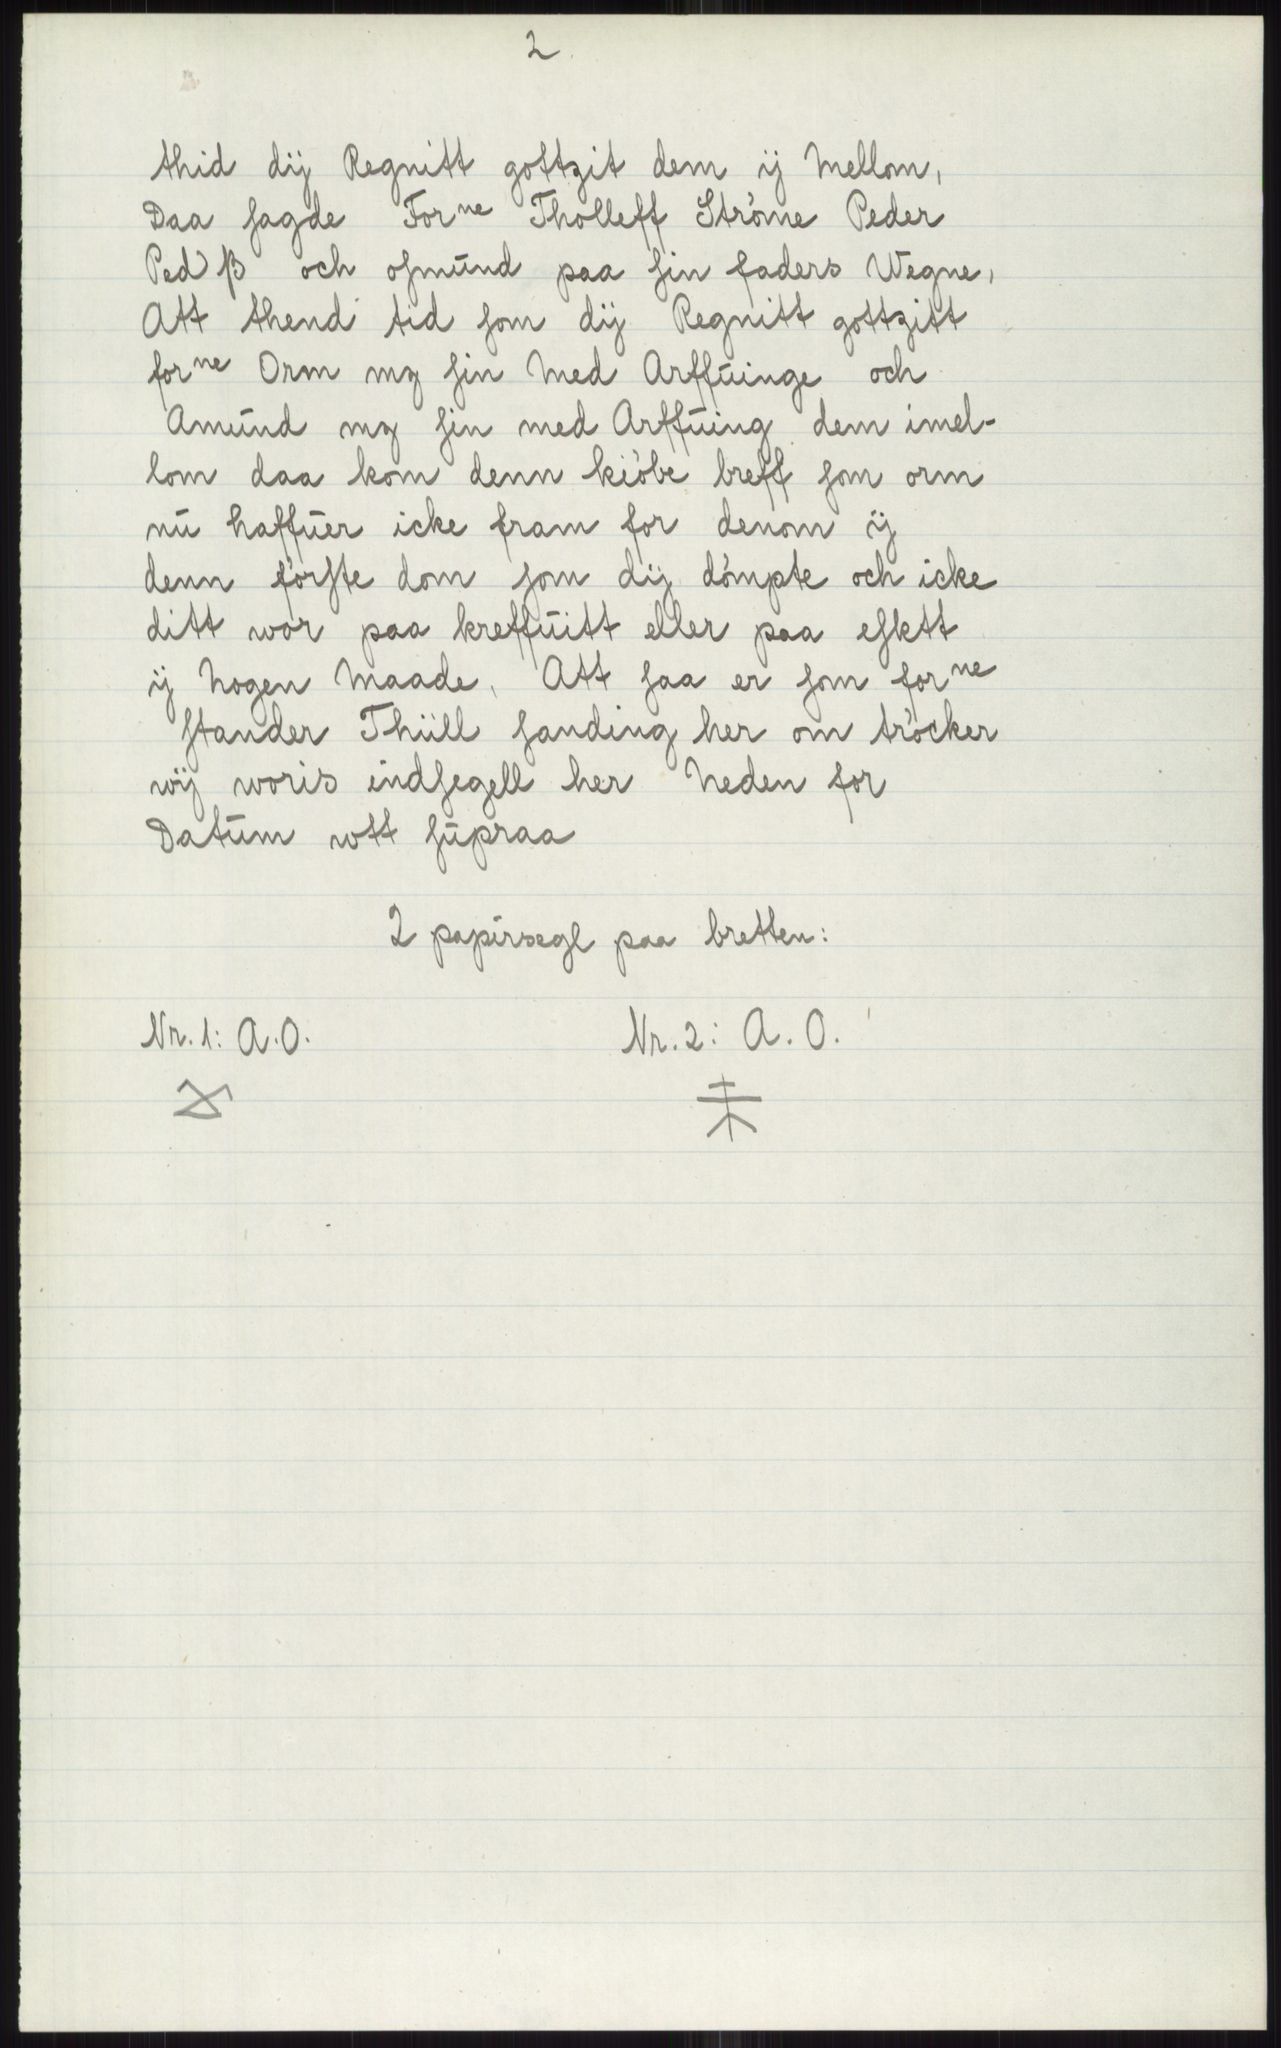 2
thid dij Regnitt gottzit dem ij Mellom,
Daa sagde For^ne Tholleff Ströme Peder
Ped ß och osmund paa sin faders Wegne,
Att thend tid som dij Regnitt gottzitt
for^ne Orm mz sin Med Arffuinge och
Amund mz sin med Arffuing dem imel-
lom daa kom denn kiöbe breff som orm
nu haffuer icke fram for denom ij
denn förste dom som dij dömpte och icke
ditt wor paa kreffuitt eller paa esktt
ij Nogen Maade, Att saa er som for^ne
stander Thiill sanding her om tröcker
wij woris indsegell her Neden for
Datum wtt supraa
2 papirsegl paa bretten:
Nr. 1: A.O. Nr. 2: A. O.